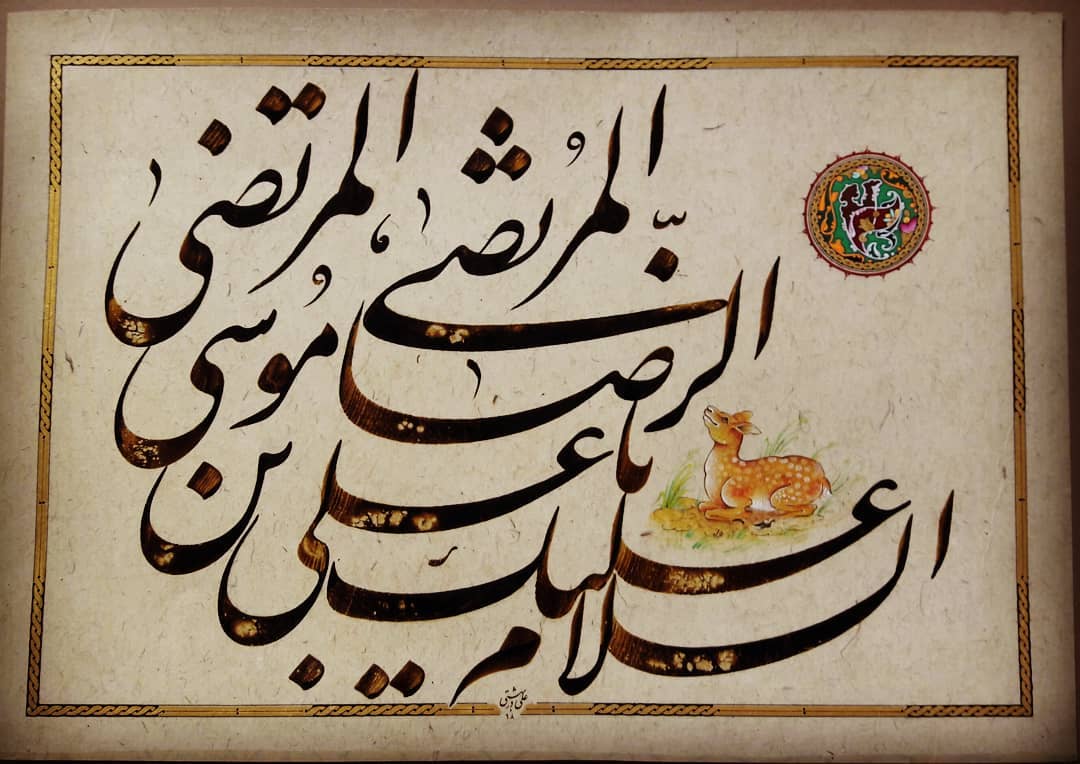 السلام علیک
یا علی بن موسی
الرّضا المُرتضی
المرتضی